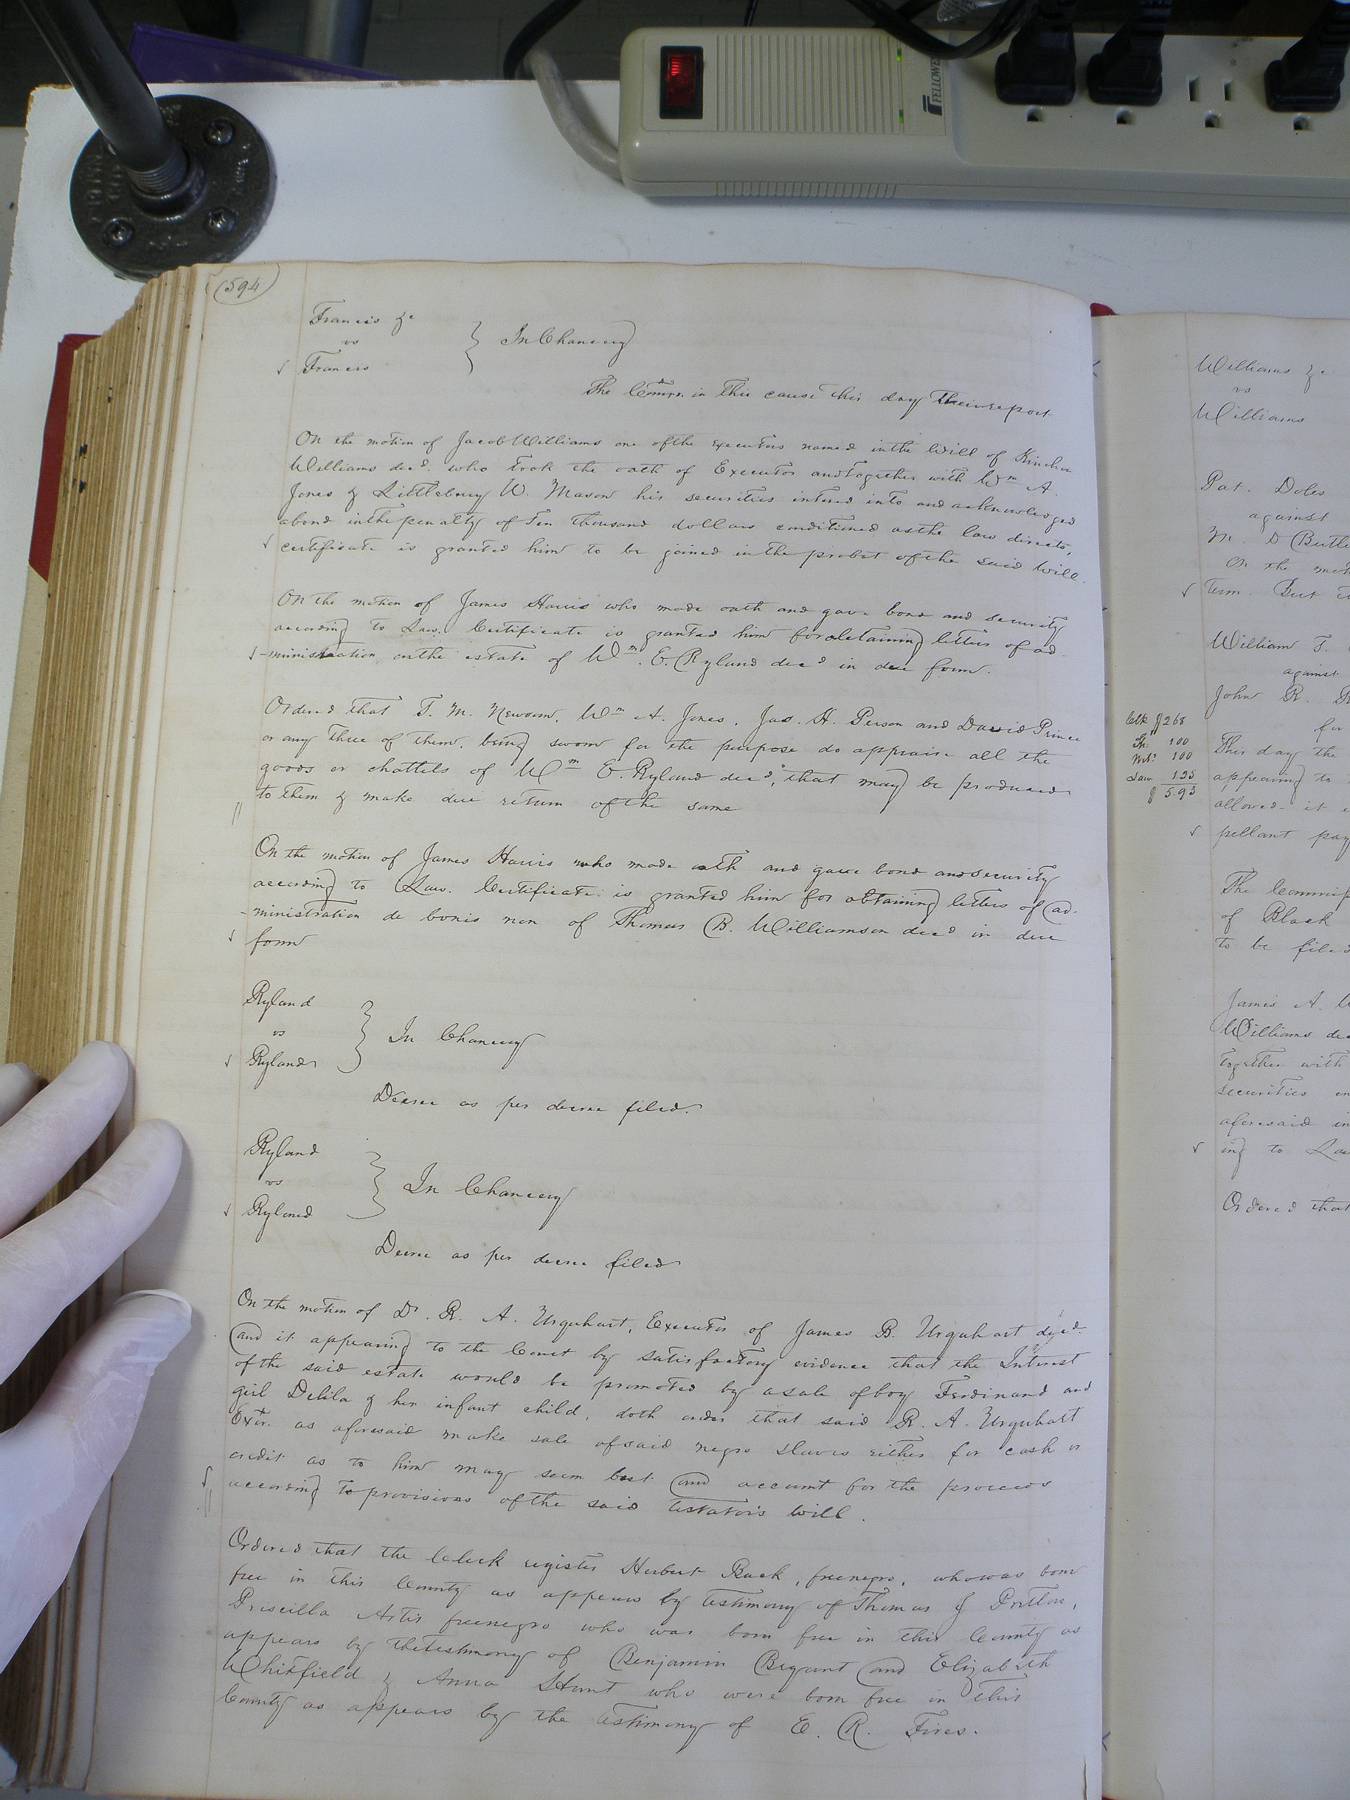 FELLOWES
594
Francis &c
vs
Francis
In Chancery
The Comrs. in this cause this day their report
On the motion of Jacob Williams one of the Executors named in the Will of Kinchen
Williams decd. who took the oath of Executor and together with Wm A.
Jones & Littlebury W. Mason his securities intered into and acknowledged
a bond in the penalty of Ten thousand dollars conditioned as the law directs,
certificate is granted him to be joined in the probat of the said Will.
On the motion of James Harris who made oath and gave bond and security
according to Law. Certificate is granted him for obtaining letters of ad-
-ministration on the estate of Wm. E. Ryland decd in due form.
Ordered that T. M. Newsom, Wm A. Jones, Jas. H. Person and David Prince
or any three of them, being sworn for the purpose do appraise all the
goods or chattels of Wm E. Ryland decd, that may be produced
to them & make due return of the same
On the motion of James Harris who made oath and gave bond and security
according to Law. Certificate is granted him for obtaining letters of ad-
-ministration de bonis non of Thomas B. Williamson decd in due
form
Ryland
vs
Ryland
In Chancery
Decree as per decree filed.
Ryland
vs
Ryland
In Chancery
Decree as per decree filed
On the motion of Dr. R. A. Urquhart, Executor of James B. Urquhart decd.
and it appearing to the Court by satisfactory evidence that the Interest
of the said estate would be promoted by a sale of boy Ferdinand and
girl Delila & her infant child, doth order that said R. A. Urquhart
Extr. as aforesaid make sale of said negro slaves either for cash or
credit as to him may seem best and account for the proceeds
according to provisions of the said testator's will.
Ordered that the Clerk register Herbert , free negro, who was born
free in this County as appears by testimony of Thomas J Pretlow,
Priscilla Artis free negro who was born free in this County as
appears by the testimony of Benjamin Bryant and Elizabeth
Whitfield & Anna Hunt who were born free in this
County as appears by the testimony of E. R.
Williams &c
vs
Williams
Pat. Doles
against
M. D Butle
On the mot
term. But
William T.
against
John R.
for
Clk $2.68
Sh. 100
100
Law 125
$ 5.93
This day the
appearing to
allowed it
pellant pay
The Commis
of Black
to be filed
James A.
Williams dec
together with
securities
aforesaid in
ing to La
Ordered that